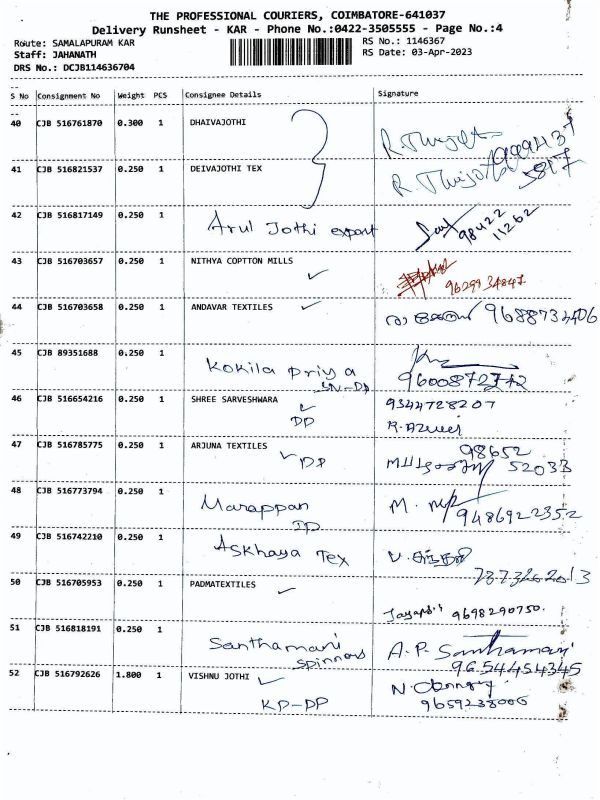 THE PROFESSIONAL COURIERS, COIMBATORE-641037
Delivery Runsheet - KAR - Phone No.:0422-3505555 - Page No.:4
Route: SAMALAPURAM KAR RS No.: 1146367
Staff: JAHANATH RS Date: 03-Apr-2023
DRS No.: DCJB114636704
S No Consignment No Weight PCS Consignee Details Signature
40 CJB 516761870 0.300 1 DHAIVAJOTHI
41 CJB 516821537 0.250 1 DEIVAJOTHI TEX
42 CJB 516817149 0.250 1 Arul Jothi export 98422
11262
43 CJB 516703657 0.250 1 NITHYA COPTTON MILLS
9629934847
44 CJB 516703658 0.250 1 ANDAVAR TEXTILES 9688734406
45 CJB 89351688 0.250 1
Kokila priya
9600872772
46 CJB 516654216 0.250 1 SHREE SARVESHWARA 9344728207
DP
47 CJB 516785775 0.250 1 ARJUNA TEXTILES 98652
DP 52033
48 CJB 516773794 0.250 1
Marappan M.
DP 9486922352
49 CJB 516742210 0.250 1 Askhaya Tex
50 CJB 516705953 0.250 1 PADMATEXTILES
9698290750.
51 CJB 516818191 0.250 1
Santhamani A.P. Santhamani
spinners 9654454345
52 CJB 516792626 1.800 1 VISHNU JOTHI
KP-DP 9659238006